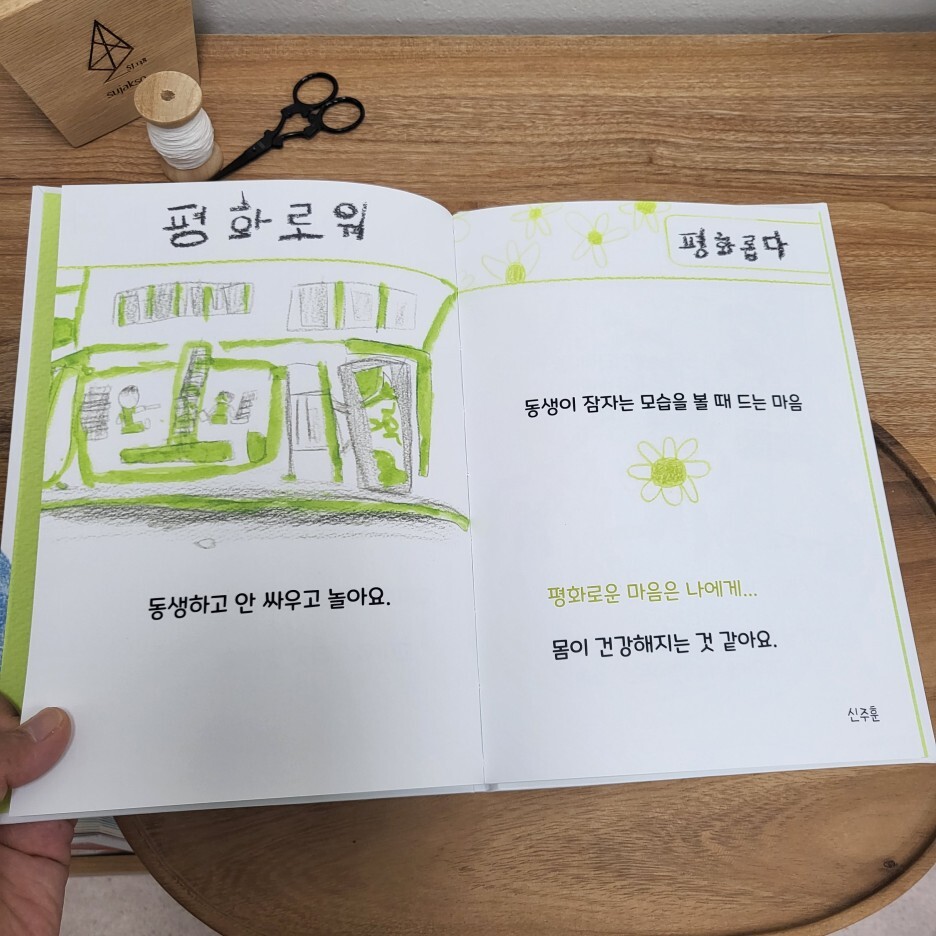 평화로워
동생하고 안 싸우고 놀아요.
평화롭다
동생이 잠자는 모습을 볼 때 드는 마음
평화로운 마음은 나에게...
몸이 건강해지는 것 같아요.
신주훈
sujakso